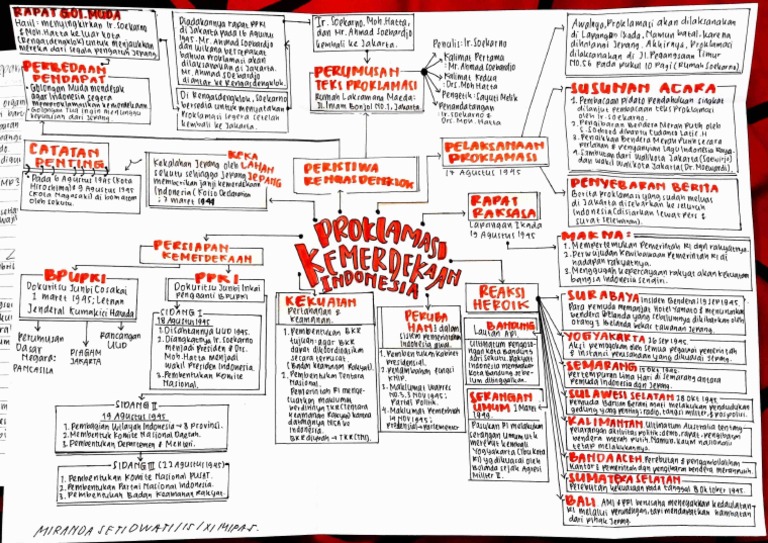 RAPAT GOL.MUDA
Hasil: menyingkirkan Ir.Soekarno
& Moh.Hatta ke luar kota
(Rengasdengklok) untuk menjauhkan
mereka dari segala pengaruh Jepang.
PERBEDAAN
PENDAPAT
• Golongan Muda mendetak
agar Indonesia segera
memproklamasikan kemerdekaan.
• Golongan Tua ingin menunggu
keputusan dari Jepang.
CATATAN
PENTING
• Pada 6 Agustus 1945 (Kota
Hiroshima) & 9 Agustus 1945
(Kota Nagasaki) di bom atom
oleh sekutu.
Diadakannya rapat PPKI
di Jakarta pada 16 Agustus
1945. Mr. Ahmad Soebardjo
dan wikana bersepakat
bahwa proklamasi akan
dilaksanakan di Jakarta.
Mr. Ahmad Soebardjo
diantar ke Rengasdengklok.
Di Rengasdengklok, Soekarno
bersedia untuk menyatakan
Proklamasi segera setelah
kembali ke Jakarta.
Ir. Soekarno, Moh. Hatta,
dan Mr. Ahmad Soebardjo
kembali ke Jakarta.
PERUMUSAN
TEKS PROKLAMASI
Rumah Laksamana Maeda:
Jl. Imam Bonjol No.1, Jakarta
Penulis: Ir. Soekarno
Kalimat Pertama
: Mr. Ahmad Soebardjo
Kalimat Kedua
: Drs. Moh Hatta
Pengetik: Sayuti Melik
Penandatangan
: Ir. soekarno &
Drs. Moh. Hatta
Awalnya, Proklamasi akan dilaksanakan
di Lapangan Ikada. Namun batal karena
dihalangi Jepang. Akhirnya, Proklamasi
dilaksanakan di Jl. Pegangsaan Timur
No.56 pada pukul 10 Pagi (Rumah Soekarno)
KEKALAHAN JEPANG
Kekalahan Jepang oleh
sekutu sehingga Jepang
memberikan janji kemerdekaan
Indonesia (Koiso Declaration
: 7 maret 1944
PERISTIWA
RENGASDENGKLOK
PELAKSANAAN
PROKLAMASI
17 Agustus 1945
SUSUNAN ACARA
1. Pembacaan Pidato Pendahuluan singkat
dilanjut pembacaan Teks Proklamasi
oleh Ir. Soekarno.
2. Pengibaran Bendera Merah Putih oleh
3. Penaikan Bendera Merah Putih secara
perlahan & pengiringan lagu Indonesia Raya
4. Sambutan dari Walikota Jakarta (Soewirjo)
dan wakil Walikota Jakarta (Dr. Moewardi)
PENYEBARAN BERITA
Berita proklamasi yang sudah meluas
di Jakarta disebarkan ke seluruh
Indonesia (disiarkan lewat Pers &
surat selebaran).
RAPAT
RAKSASA
Lapangan Ikada
19 Agustus 1945
MAKNA:
1. Mempertemukan Pemerintah RI dgn rakyatnya.
2. Perwujudan Kewibawaan Pemerintah RI di
hadapan rakyatnya.
3. Menggugah kepercayaan rakyat akan kekuatan
bangsa Indonesia sendiri.
PROKLAMASI
KEMERDEKAAN
INDONESIA
PERSIAPAN
KEMERDEKAAN
BPUPKI
Dokuritsu Junbi Cosakai
1 maret 1945; Letnan
Jenderal Kumakici Harada
Perumusan
Dasar
Negara:
PANCASILA
PIAGAM
JAKARTA
Rancangan
UUD
PPKI
Dokuritsu Junbi Inkai
Pengganti BPUPKI
SIDANG I
18 Agustus 1945
1. Disahkannya UUD 1945.
2. Diangkatnya Ir. Soekarno
menjadi Presiden & Drs.
Moh. Hatta menjadi
wakil Presiden Indonesia.
3. Pembentukan Komite
Nasional.
SIDANG II
19 Agustus 1945
1. Pembagian Wilayah Indonesia → 8 Provinsi.
2. Membentuk Komite Nasional Daerah.
3. Pembentukan Departemen & Menteri.
SIDANG III (22 Agustus 1945)
1. Pembentukan Komite Nasional PUSAT.
2. Pembentukan Partai Nasional Indonesia.
3. Pembentukan Badan Keamanan Rakyat.
KEKUATAN
Pertahanan &
Keamanan.
1. Pembentukan BKR
tujuan: agar BKR
dapat dikoordinasi
secara terpusat.
(Badan Keamanan Rakyat).
2. Pembentukan Tentara
Nasional.
Pemerintah RI mengeluarkan
maklumat
berdirinya TKR (Tentara
Keamanan Rakyat) karena
datangnya NICA ke
Indonesia.
BKR diubah → TKR (TNI).
PERUBAHAN
dalam
Sistem Pemerintahan
Indonesia
1. Pembentukan Kabinet
Presidensial.
2. Penambahan fungsi
KNIP.
3. Maklumat Wapres
No.X, 3 Nov 1945:
Partai Politik
4. Maklumat Pemerintah
14 Nov 1945:
Presidensial → Parlementer
REAKSI
HEROIK
BANDUNG
Lautan Api.
Ultimatum pengosongan
Kota Bandung
dari sekutu. Rakyat
Indonesia membakar
Kota Bandung sebelum
ditinggalkan.
SERANGAN
UMUM 1 Maret
1949
Pasukan RI melakukan
serangan umum untuk
merebut kembali
Yogyakarta (Ibu Kota
RI) yg dikuasai oleh
Belanda sejak Agresi
Militer II.
SURABAYA Insiden Bendera 19 Sep 1945.
Para pemuda memanjat Hotel Yamato & menurunkan
bendera Belanda yang sebelumnya dikibarkan oleh
orang2 Belanda bekas tawanan Jepang.
YOGYAKARTA 26 Sep 1945.
Aksi pemogokan oleh semua pegawai pemerintah
& instansi perusahaan yang dikuasai Jepang.
SEMARANG 15 Okt 1945.
Pertempuran Lima Hari di Semarang antara
pemuda Indonesia dgn Jepang.
SULAWESI SELATAN 28 Okt 1945
pemuda Barisan Berani Mati melakukan pendudukan
gedung yang penting: radio, tangsi militer, & pos polisi.
KALIMANTAN Ultimatum Australia tentang
pelarangan aktivitas politik: demo, rapat, pengibaran
bendera merah putih. Namun kaum nasionalis
tetap melakukannya.
BANDA ACEH Perebutan & pengambilalihan
Kantor2 Pemerintah dan pengibaran bendera merah putih.
SUMATERA SELATAN
Perebutan kekuasaan pada tanggal 8 Oktober 1945.
BALI AMI & PRI berusaha menegakkan kedaulatan
RI melalui perundingan, tapi mendapatkan hambatan
dari pihak Jepang.
MIRANDA SETIOWATI/15/XI MIPA 5.